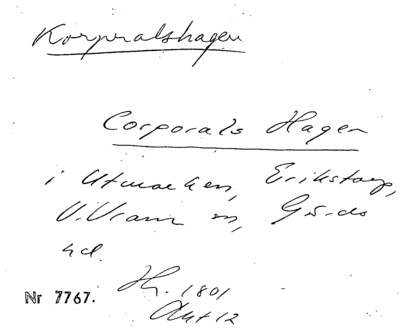 Korpralshagen
Corporals Hagen
i Utmarken, Erikstorp,
V. Vram sn, Gärds
hd.
Nr 7767.
H. 1801
Akt 12